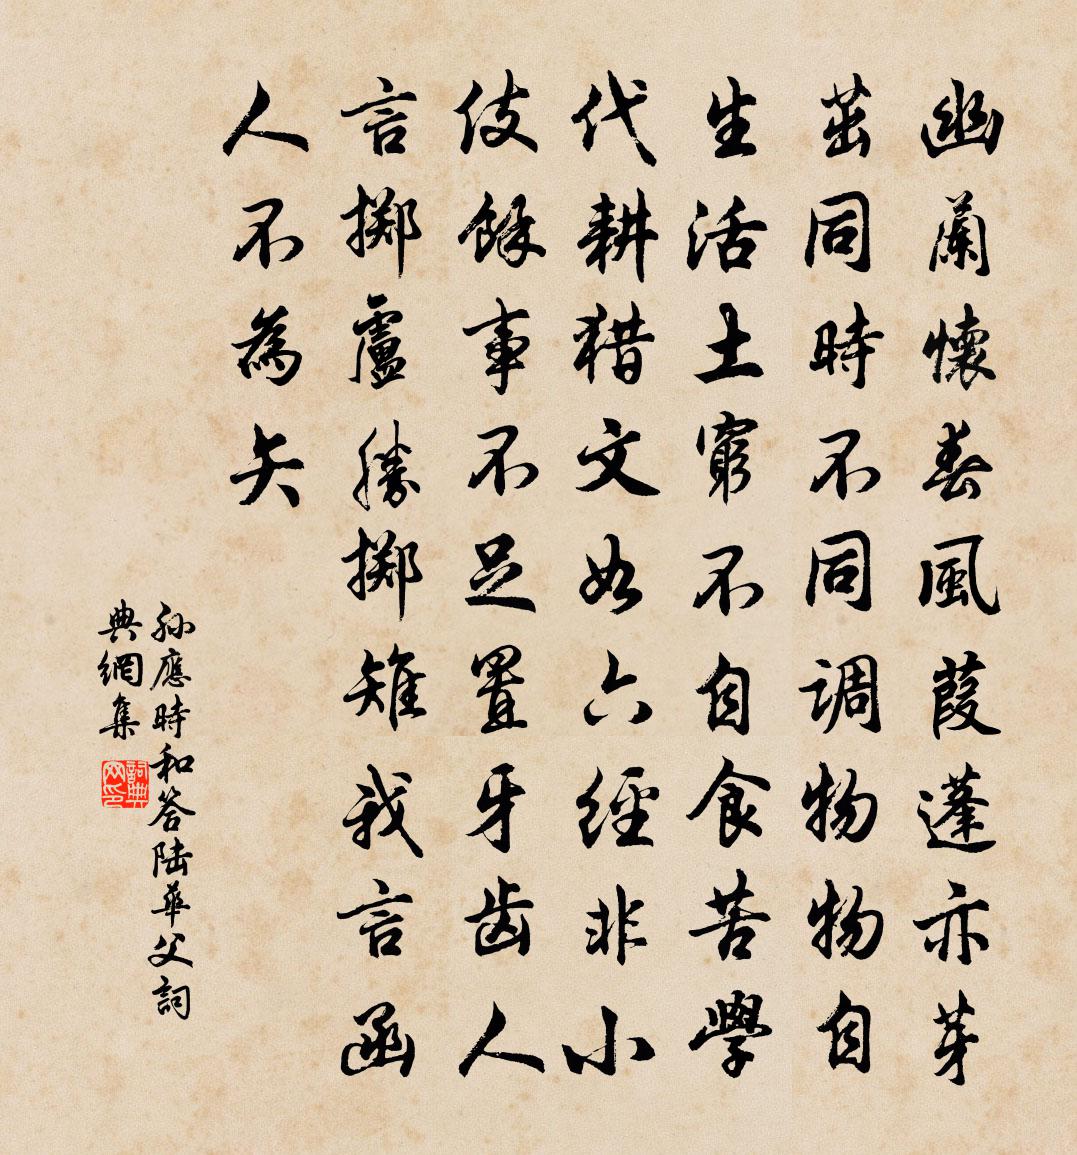 幽蘭懷春風葭蓬亦芽
茁同時不同調物物自
生活土窮不自食苦學
代耕猎文如六經非小
伎餘事不足置牙齿人
言擲盧勝擲雉我言函
人不為矢
孙應時和答陆華父詞
典網集
詞典网印